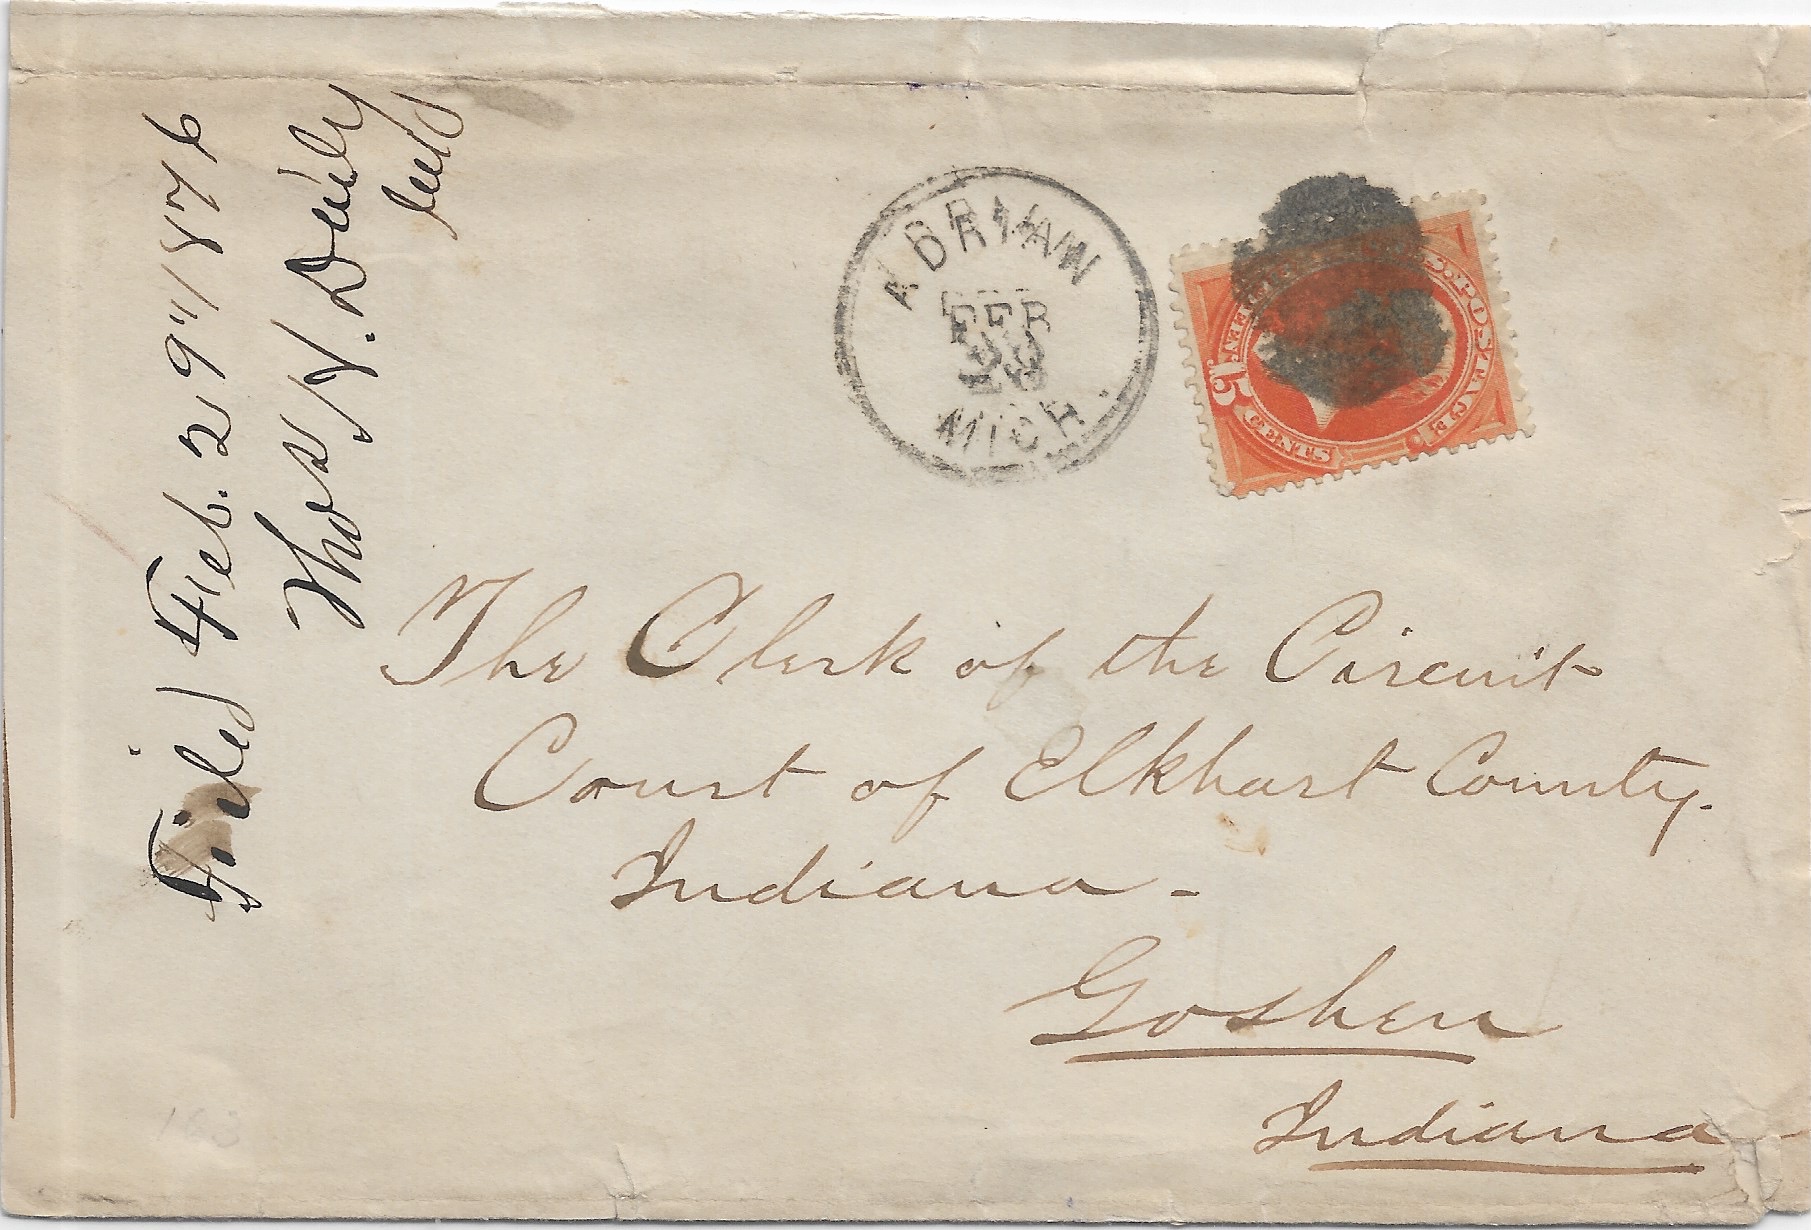 Filed Feb. 29" 1876
Thos J. Daily
Clk
ADRIAN
FEB
28
MICH.
U.S. POSTAGE
15
CENTS
The Clerk of the Circuit
Court of Elkhart County.
Indiana -
Goshen
Indiana
163